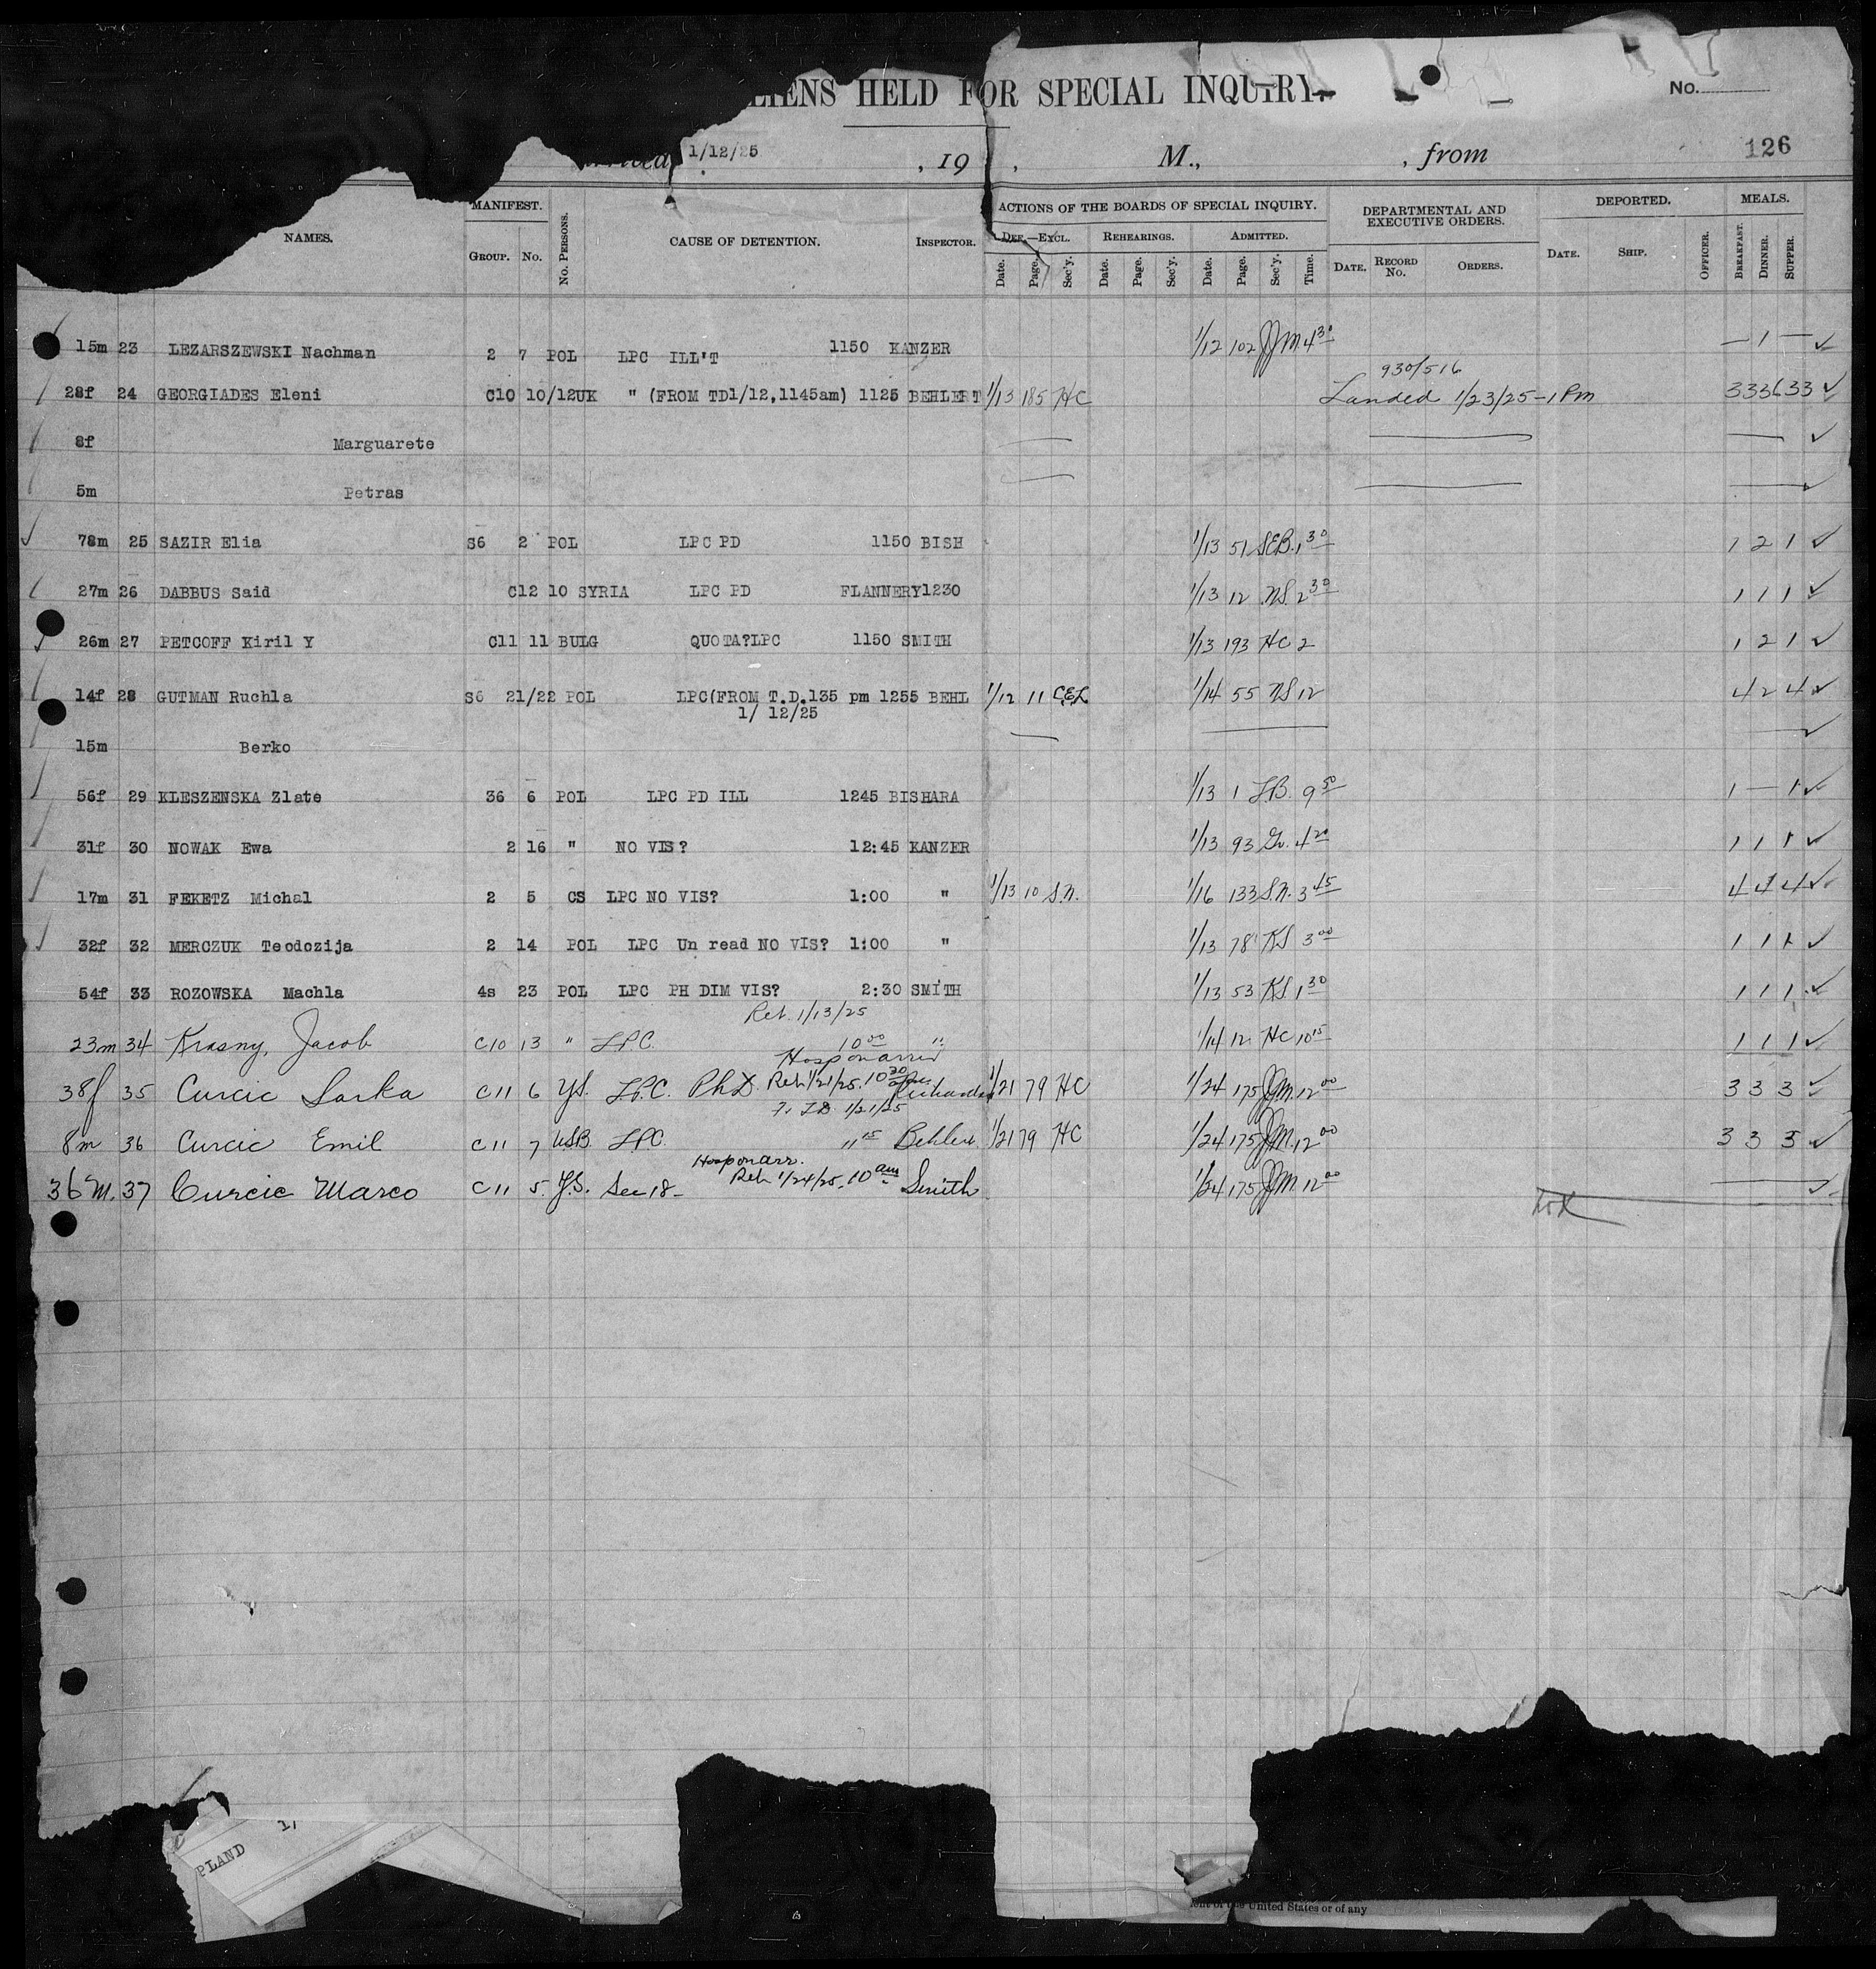 LIENS HELD FOR SPECIAL INQUIRY.
No.
1/12/25 , 19 , M., , from 126
NAMES. MANIFEST. GROUP. No. No. PERSONS. CAUSE OF DETENTION. INSPECTOR. ACTIONS OF THE BOARDS OF SPECIAL INQUIRY. DEF.—EXCL. Date. Page. Sec'y. REHEARINGS. Date. Page. Sec'y. ADMITTED. Date. Page. Sec'y. Time. DEPARTMENTAL AND EXECUTIVE ORDERS. DATE. RECORD No. ORDERS. DEPORTED. DATE. SHIP. OFFICER. MEALS. BREAKFAST. DINNER. SUPPER.
15m 23 LEZARSZEWSKI Nachman 2 7 POL LPC ILL'T 1150 KANZER 1/12 102 JJM. 4 30 — 1 —
930/516
28f 24 GEORGIADES Eleni C10 10/12UK " (FROM TD1/12,1145am) 1125 BEHLERT 1/13 185 HC Landed 1/23/25 - 1 Pm
8f Marguarete
5m Petras
78m 25 SAZIR Elia S6 2 POL LPC PD 1150 BISH 1/13 51 SEB. 1 30 1 2 1
27m 26 DABBUS Said C12 10 SYRIA LPC PD FLANNERY1230 1/13 12 NS. 2 30 1 1 1
26m 27 PETCOFF Kiril Y C11 11 BULG QUOTA?LPC 1150 SMITH 1/13 193 HC 2 1 2 1
14f 28 GUTMAN Ruchla S6 21/22 POL LPC(FROM T.D.135 pm 1255 BEHL 1/12 11 CEL 1/14 55 NS 12 4 2 4
1/ 12/25
15m Berko
56f 29 KLESZENSKA Zlate 36 6 POL LPC PD ILL 1245 BISHARA 1/13 1 LB. 9 50 1 — 1
31f 30 NOWAK Ewa 2 16 " NO VIS? 12:45 KANZER 1/13 93 4 20 1 1 1
17m 31 FEKETZ Michal 2 5 CS LPC NO VIS? 1:00 " 1/13 10 S.N. 1/16 133 S.N. 3 45 4 4 4
32f 32 MERCZUK Teodozija 2 14 POL LPC Un read NO VIS? 1:00 " 1/13 78 KS 3 00 1 1 1
54f 33 ROZOWSKA Machla 4s 23 POL LPC PH DIM VIS? 2:30 SMITH 1/13 53 KS 1 30 1 1 1
Ret. 1/13/25
23m 34 Krasny, Jacob C10 13 " LPC. 10 00 " 1/14 12 HC 10 15 1 1 1
Hosp on arr
38f 35 Curcic Sarka C11 6 Y.S. LPC. PhD. Ret 1/21/25. 10 30 am 1/21 79 HC 1/24 175 JJM. 12 00 3 3 3
TD 1/21/25
8m 36 Curcic Emil C11 7 USB. LPC. 11 15 Behlert 1/21 79 HC 1/24 175 JJM. 12 00 3 3 3
Hosp on arr.
36 M. 37 Curcic Marco C11 5. Y.S. Sec 18- Ret 1/24/25. 10 am Smith 1/24 175 JJM. 12 00
PLAND
United States or of any